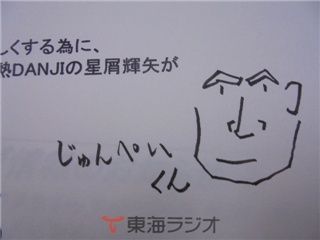 しくする為に、
熱DANJIの星屑輝矢が
じゅんぺい
くん
東海ラジオ